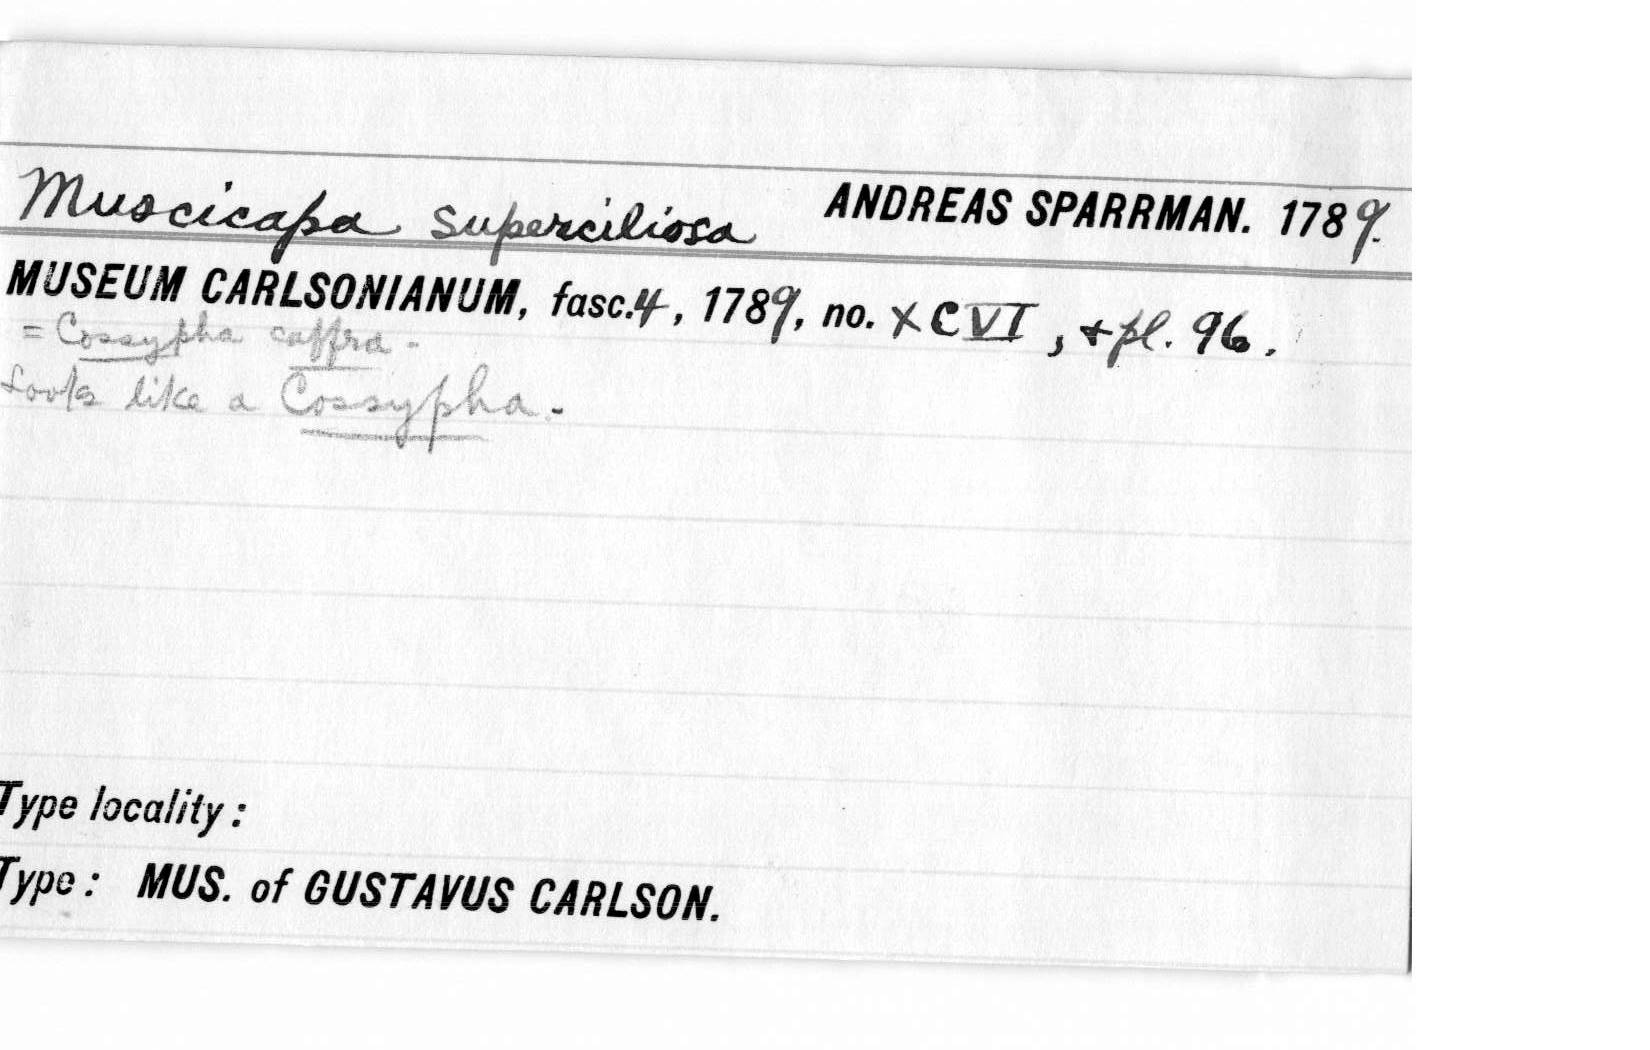 Muscicapa superciliosa ANDREAS SPARRMAN. 1789.
MUSEUM CARLSONIANUM, fasc.4, 1789, no. XCVI, + pl. 96.
= Cossypha caffra.
Looks like a Cossypha.
Type locality:
Type: MUS. of GUSTAVUS CARLSON.